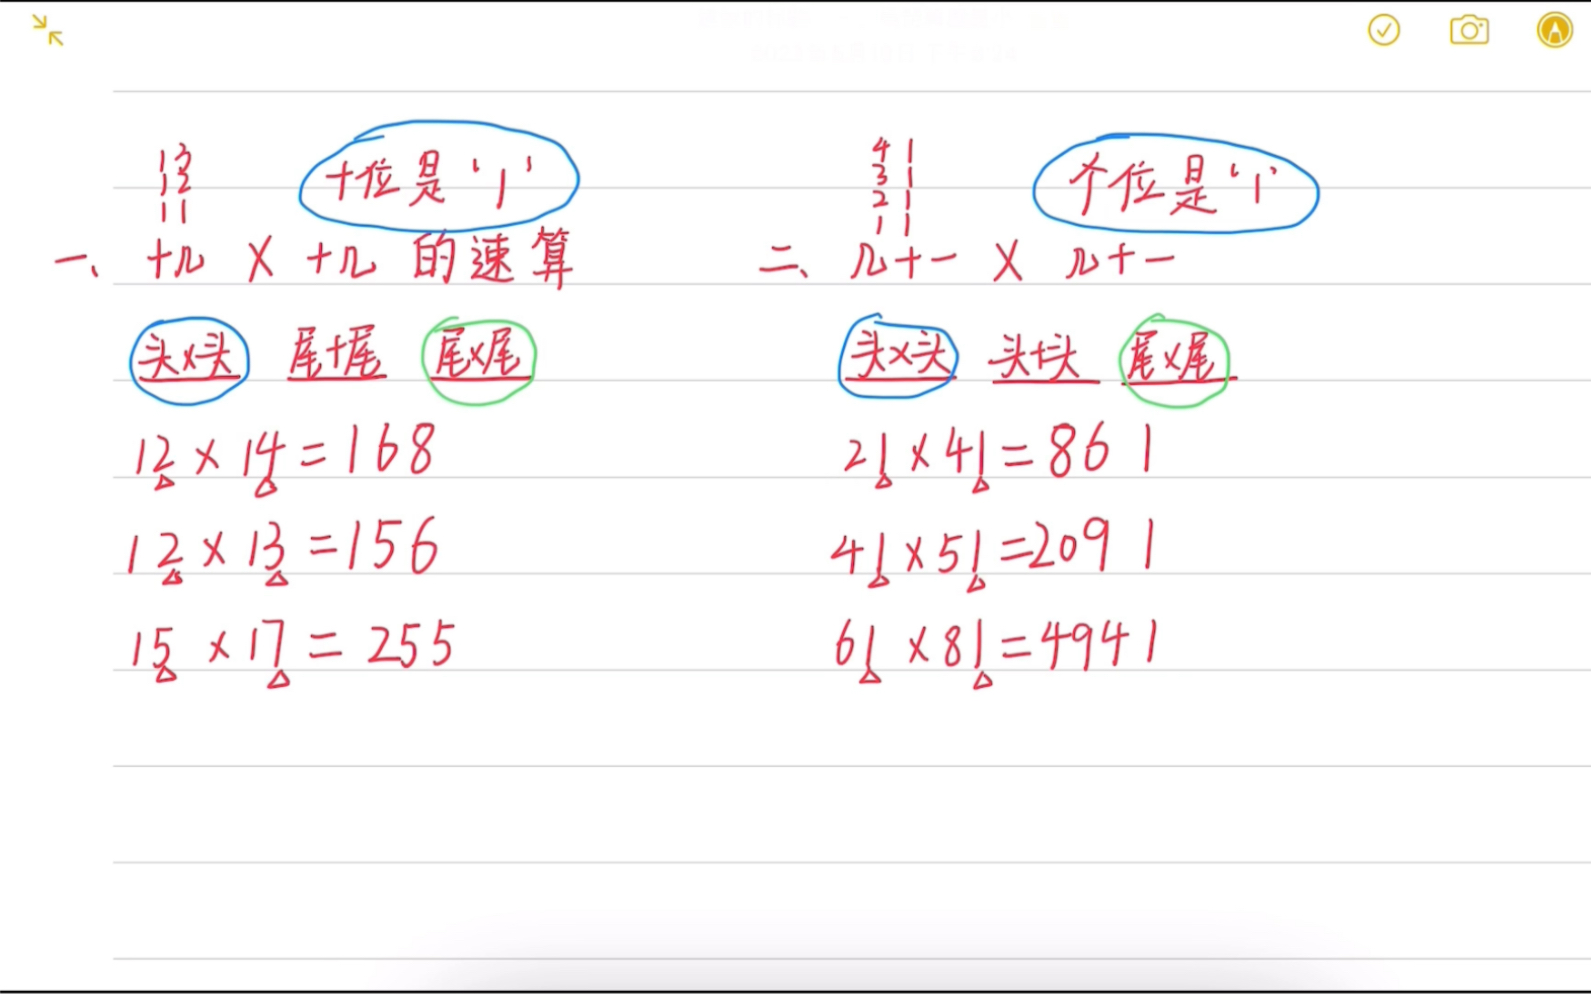 13
12
11
十位是‘1’
一、十几 × 十几 的速算
头×头 尾+尾 尾×尾
12 × 14 = 168
12 × 13 = 156
15 × 17 = 255
41
31
21
11
个位是‘1’
二、几十一 × 几十一
头×头 头+头 尾×尾
21 × 41 = 861
41 × 51 = 2091
61 × 81 = 4941